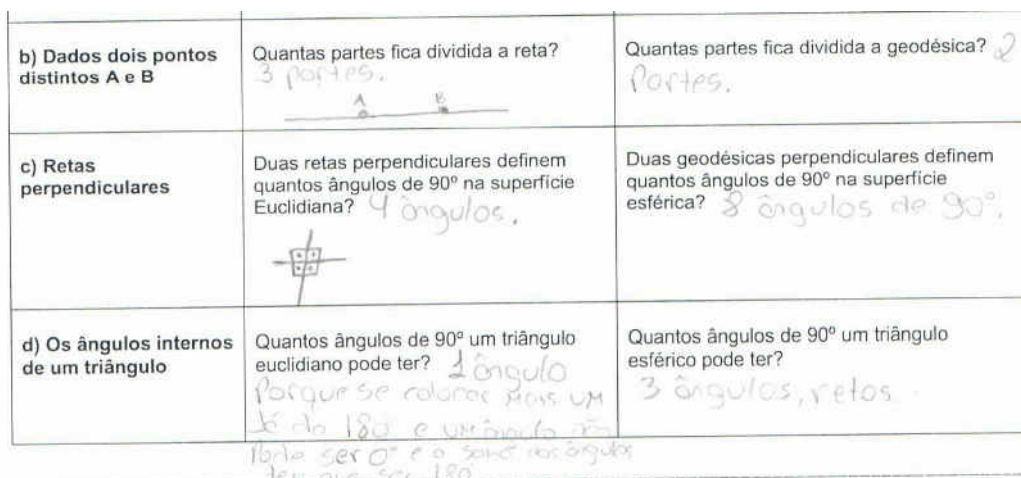 b) Dados dois pontos
distintos A e B
Quantas partes fica dividida a reta?
3 partes.
A B
Quantas partes fica dividida a geodésica? 2
Partes.
c) Retas
perpendiculares
Duas retas perpendiculares definem
quantos ângulos de 90º na superfície
Euclidiana? 4 ângulos.
Duas geodésicas perpendiculares definem
quantos ângulos de 90º na superfície
esférica? 8 ângulos de 90°.
d) Os ângulos internos
de um triângulo
Quantos ângulos de 90º um triângulo
euclidiano pode ter? 1 ângulo
Porque se colocar mais um
Já da 180 e um ângulo não
Pode ser 0° e a soma dos ângulos
tem que ser 180
Quantos ângulos de 90º um triângulo
esférico pode ter?
3 ângulos, retos.